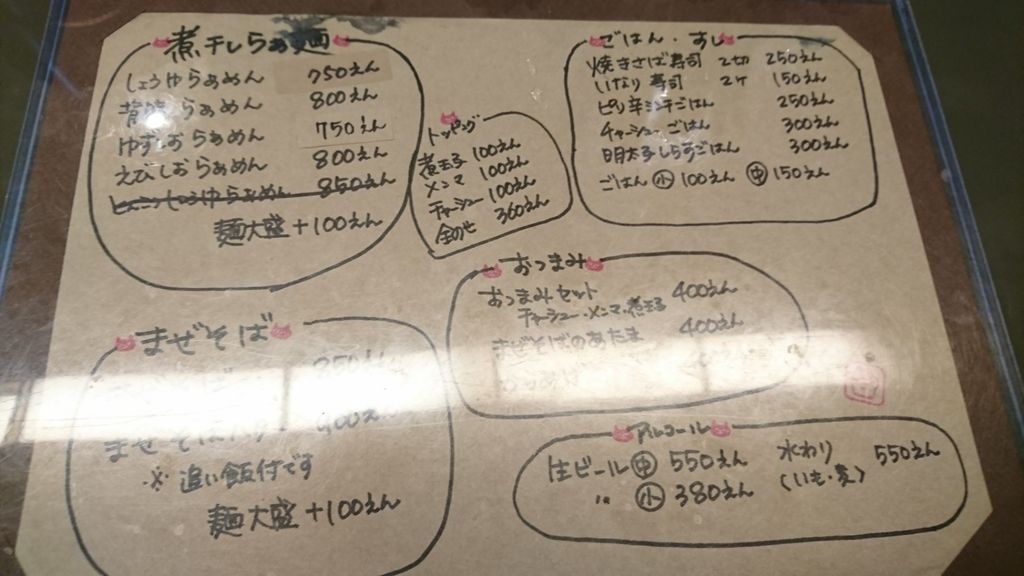 煮干しらぁ麺
しょうゆらぁめん 750えん
背脂らぁめん 800えん
ゆずしおらぁめん 750えん
えびしおらぁめん 800えん
しょうゆらぁめん 850えん
麺大盛 +100えん
トッピング
煮玉子 100えん
メンマ 100えん
チャーシュー 100えん
全のせ 360えん
ごはん・すし
焼きさば寿司 2切 250えん
いなり寿司 2ケ 150えん
ピリ辛 ごはん 250えん
チャーシューごはん 300えん
明太子しらすごはん 300えん
ごはん 小 100えん 中 150えん
おつまみ
おつまみセット 400えん
チャーシュー・メンマ・煮玉子
まぜそばのあたま 400えん
まぜそば
まぜそば
※追い飯付です
麺大盛 +100えん
アルコール
生ビール 中 550えん
〃 小 380えん
水わり 550えん
(いも・麦)